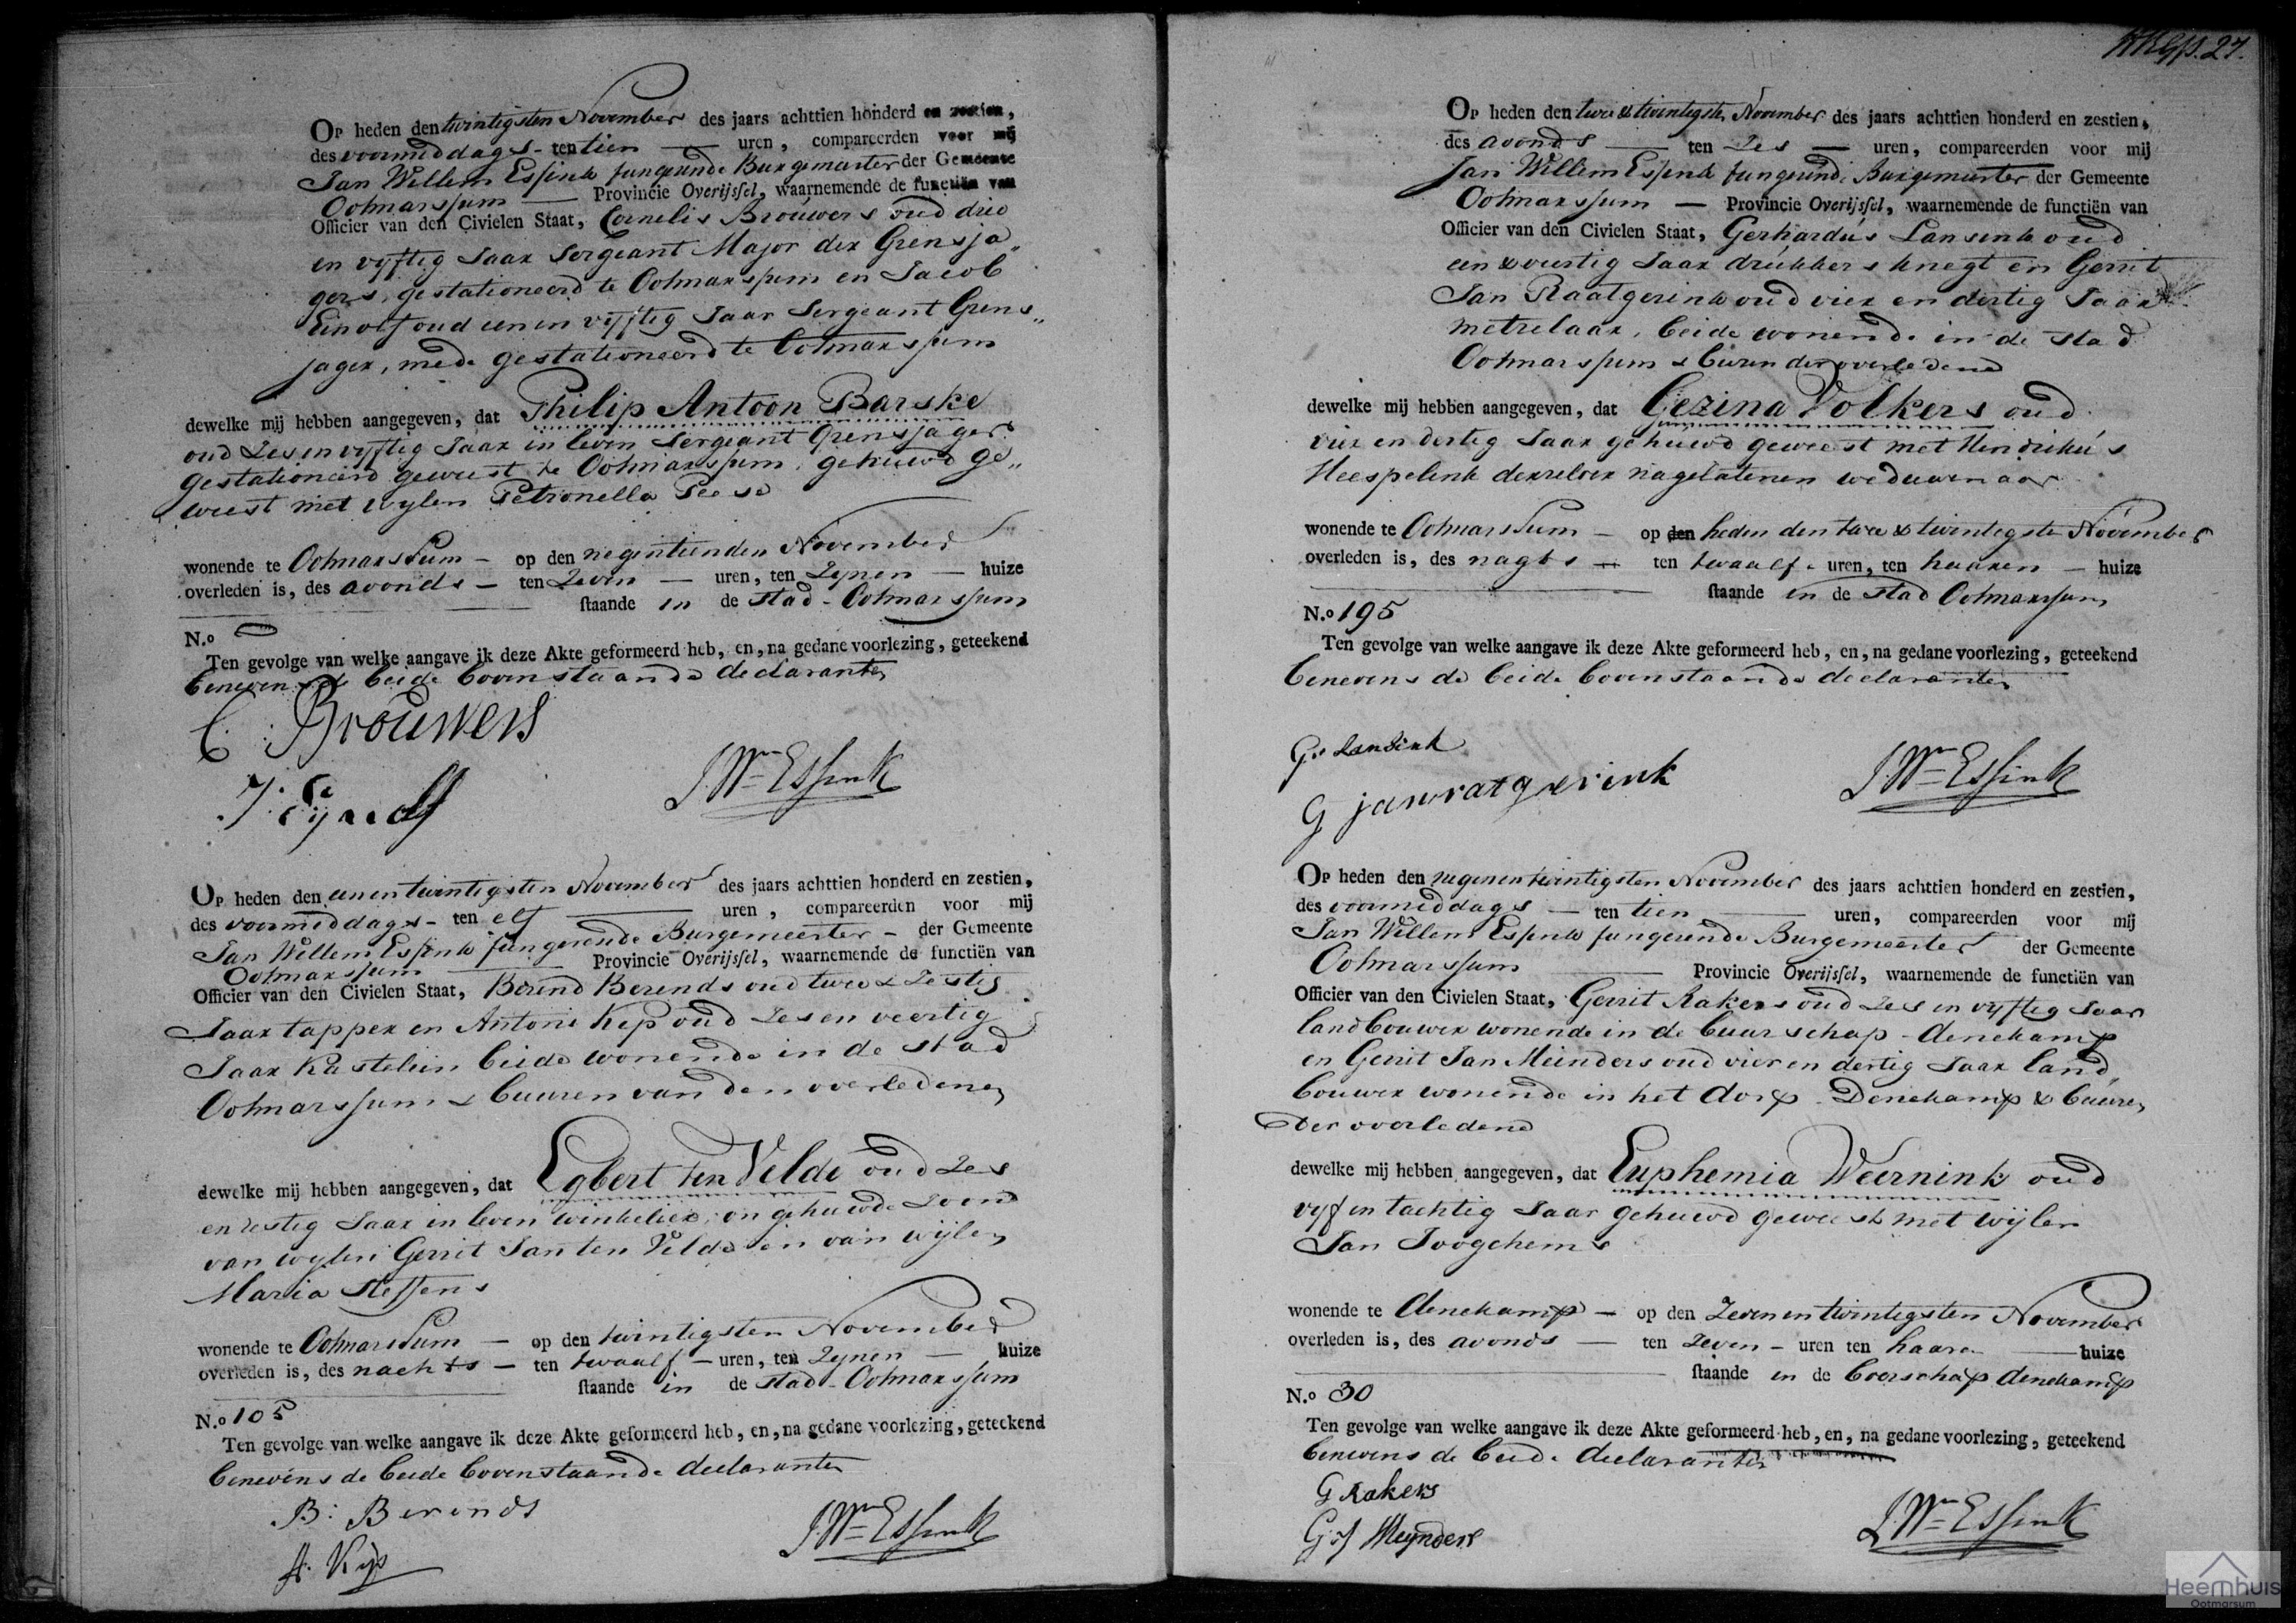 Op heden den twintigsten November des jaars achttien honderd en zestien,
des voormiddags - ten tien — uren, compareerden voor mij
Jan Willem Essink fungerende Burgemeester der Gemeente
Ootmarssum — Provincie Overijssel, waarnemende de functiën van
Officier van den Civielen Staat, Cornelis Brouwers oud drie
en vyftig Jaar Sergeant Major der Grensja„
gers, gestationeerd te Ootmarssum en Jacob
Einolf oud een en vyftig Jaar Sergeant Grens„
jager, mede gestationeerd te Ootmarssum
dewelke mij hebben aangegeven, dat Philip Antoon Barske
oud Zes en vyftig Jaar in leven Sergeant Grensjager
gestationeerd geweest te Ootmarssum, gehuwd ge„
weest met wylen Petronella Peese
wonende te Ootmarssum — op den negentienden November
overleden is, des avonds — ten Zeven — uren, ten Zynen — huize
staande in de stad - Ootmarssum
N.o
Ten gevolge van welke aangave ik deze Akte geformeerd heb, en, na gedane voorlezing, geteekend
benevens de beide bovenstaande declaranten
C. Brouwers
JWm Essink
Op heden den een en twintigsten November des jaars achttien honderd en zestien,
des voormiddags - ten elf — uren, compareerden voor mij
Jan Willem Essink fungerende Burgemeester - der Gemeente
Ootmarssum — Provincie Overijssel, waarnemende de functiën van
Officier van den Civielen Staat, Berend Berends oud twee & Zestig
Jaar tapper en Antoni Kip oud Zes en veertig
Jaar Kastelein beide wonende in de stad
Ootmarssum & buuren van den overledenen
dewelke mij hebben aangegeven, dat Egbert ten Velde oud Zes
en Zestig Jaar in leven winkelier, ongehuwde Zoon
van wylen Gerrit Jan ten Velde en van wijlen
Maria Steffens
wonende te Ootmarssum — op den twintigsten November
overleden is, des nachts — ten twaalf — uren, ten Zynen — huize
staande in de stad - Ootmarssum
N.o 105
Ten gevolge van welke aangave ik deze Akte geformeerd heb, en, na gedane voorlezing, geteekend
benevens de beide bovenstaande declaranten
B: Berends
JWm Essink
A. Kip
27.
Op heden den twee & twintigste November des jaars achttien honderd en zestien,
des avonds — ten Zes — uren, compareerden voor mij
Jan Willem Essink fungerende Burgemeester der Gemeente
Ootmarssum — Provincie Overijssel, waarnemende de functiën van
Officier van den Civielen Staat, Gerhardus Lansink oud
een & veertig Jaar drukkers knegt en Gerrit
Jan Raatgerink oud vier en dertig Jaar
metzelaar, beide wonende in de stad
Ootmarssum & buren der overledene
dewelke mij hebben aangegeven, dat Gezina Volkers oud
vier en dertig Jaar gehuwd geweest met Hendrikus
Heespelink derzelver nagelatenen weduwenaar
wonende te Ootmarssum — op den heden den twee & twintigste November
overleden is, des nagts — ten twaalf - uren, ten haaren — huize
staande in de stad Ootmarssum
N.o 195
Ten gevolge van welke aangave ik deze Akte geformeerd heb, en, na gedane voorlezing, geteekend
benevens de beide bovenstaande declaranten
G: Lansink
G jan ratgerink
JWm Essink
Op heden den negenentwintigsten November des jaars achttien honderd en zestien,
des voormiddags — ten tien — uren, compareerden voor mij
Jan Willem Essink fungerende Burgemeester der Gemeente
Ootmarssum — Provincie Overijssel, waarnemende de functiën van
Officier van den Civielen Staat, Gerrit Rakers oud Zes en vyftig Jaar
landbouwer wonende in de buurschap - denekamp
en Gerrit Jan Meinders oud vier en dertig Jaar land„
bouwer wonende in het dorp Denekamp & buuren
der overledene
dewelke mij hebben aangegeven, dat Euphemia Weernink oud
vyf en tachtig Jaar gehuwd geweest met wijlen
Jan Joogchems
wonende te denekamp — op den Zevenentwintigsten November
overleden is, des avonds — ten Zeven - uren ten haare — huize
staande in de boerschap denekamp
N.o 30
Ten gevolge van welke aangave ik deze Akte geformeerd heb, en, na gedane voorlezing, geteekend
benevens de beide declaranten
G Rakers
G:J Meynders
JWm Essink
Heemhuis
Ootmarsum